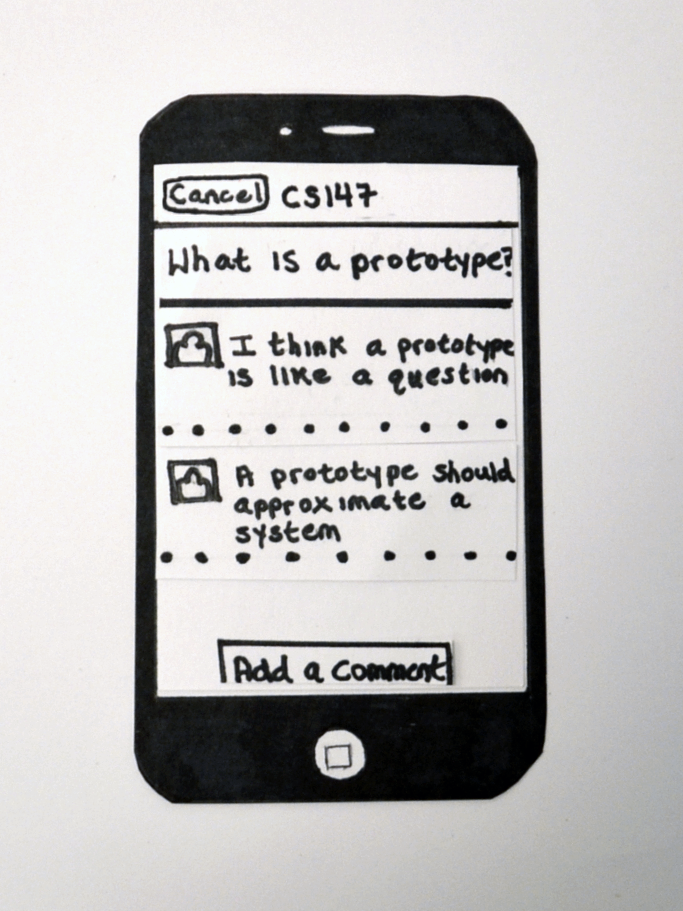 Cancel CS147
What is a prototype?
I think a prototype
is like a question
A prototype should
approximate a
system
Add a comment